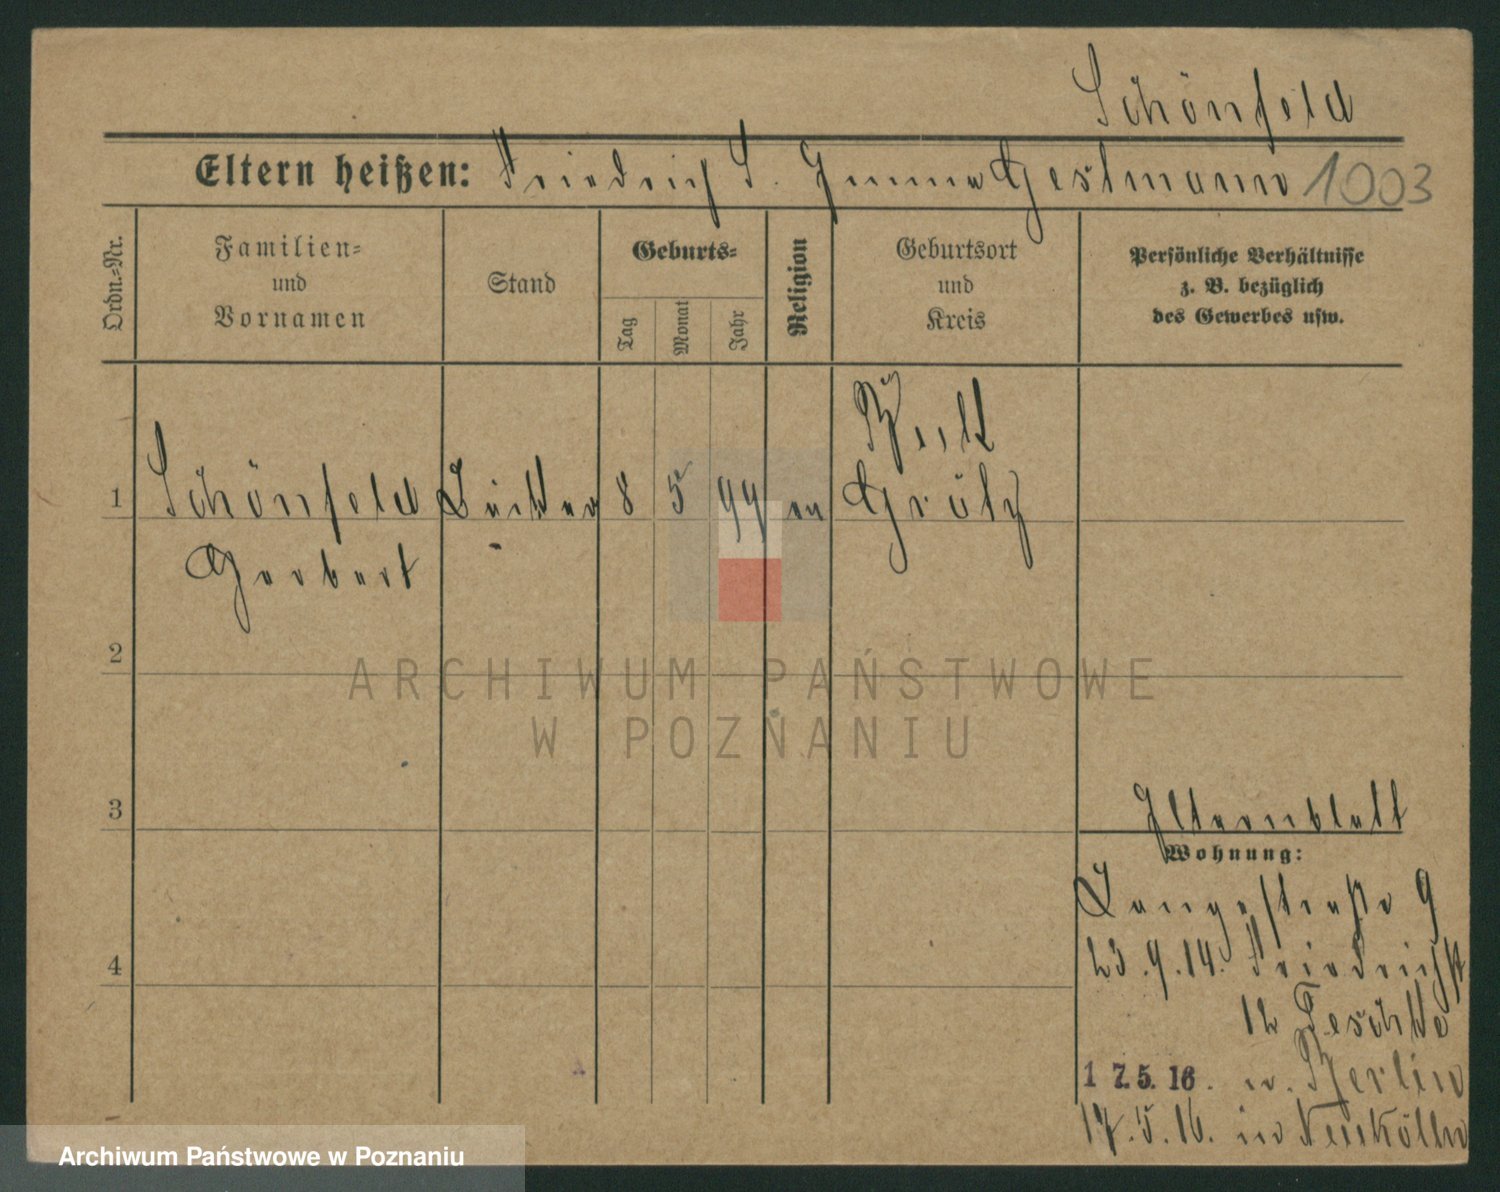 Schönfeld
Eltern heißen: Friedrich S. Emma Gestmann 1003
Ordn.=Nr.
Familien=
und
Vornamen
Stand
Geburts=
Tag
Monat
Jahr
Religion
Geburtsort
und
Kreis
Persönliche Verhältnisse
z. B. bezüglich
des Gewerbes usw.
1 Schönfeld 8 5 99 ev Grätz
Gerbert
2
3
4
Elternblatt
Wohnung:
Langestraße 9
23.9.14. Friedrichst
12 Teschke
17.5.16. n. Berlin
17.5.16. in Neukölln
ARCHIWUM PAŃSTWOWE
W POZNANIU
Archiwum Państwowe w Poznaniu